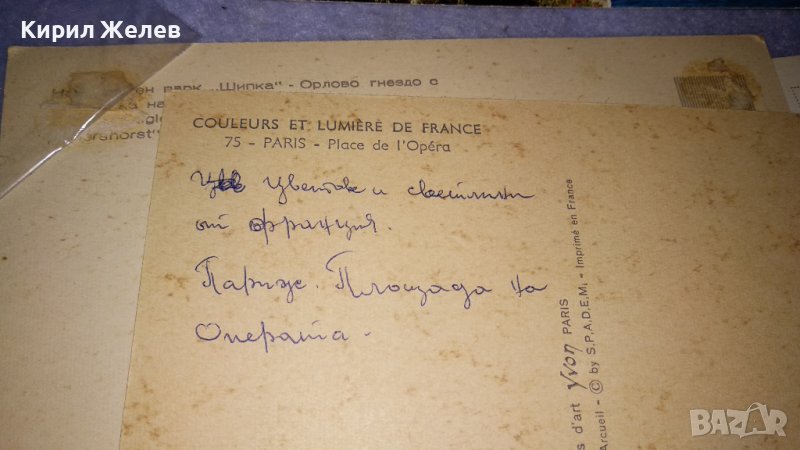 Кирил Желев
ен парк „Шипка“ - Орлово гнездо с
на
COULEURS ET LUMIÈRE DE FRANCE
75 - PARIS - Place de l'Opéra
цветове и светлини
от Франция.
Париж. Площада на
Операта.
s d'art Yvon PARIS
Arcueil - © by S.P.A.D.E.M. - Imprimé en France
BAZAR